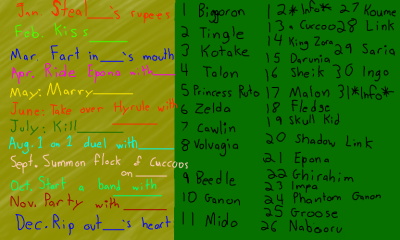 Jan. Steal___'s rupees
Feb. Kiss
Mar. Fart in___'s mouth
Apr. Ride Epona with
May: Marry
June: Take over Hyrule with
July: Kill
Aug. 1 on 1 duel with
Sept. Summon flock of cuccoos
on
Oct. Start a band with
Nov. Party with
Dec. Rip out___'s heart
1 Biggoron
2 Tingle
3 Kotake
4 Talon
5 Princess Ruto
6 Zelda
7 Cawlin
8 Volvagia
9 Beedle
10 Ganon
11 Mido
12 *Info*
13 a Cuccoo
14 King Zora
15 Darunia
16 Sheik
17 Malon
18 Fledge
19 Skull Kid
20 Shadow Link
21 Epona
22 Ghirahim
23 Impa
24 Phantom Ganon
25 Groose
26 Nabooru
27 Koume
28 Link
29 Saria
30 Ingo
31 *Info*